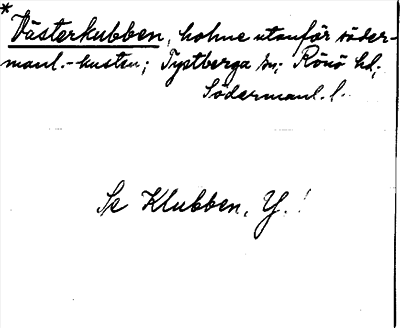 *
Västerkubben, holme utanför söder-
manl.-kusten; Tystberga sn; Rönö hd,
Södermanl. l.
Se Klubben, Y.!